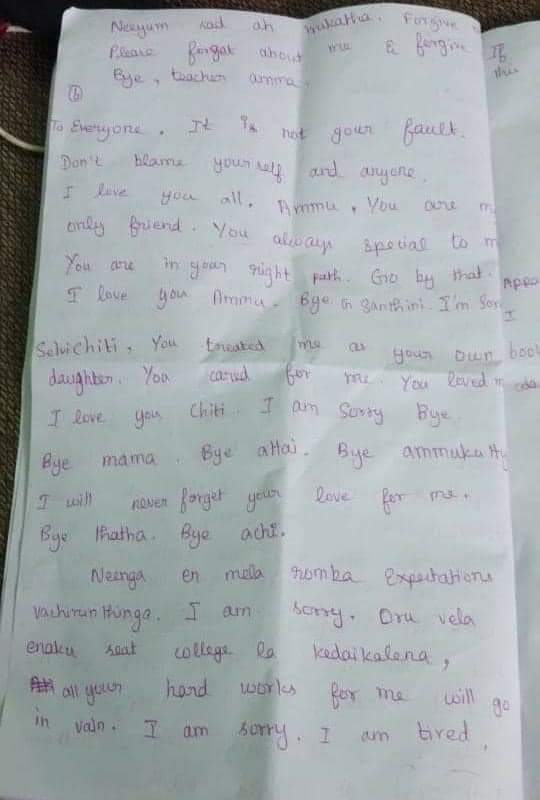 Neeyum sad ah irukatha. Forgive
Please forgot about me & forgive
Bye, teacher amma.
6
To Everyone. It is not your fault.
Don't blame yourself and anyone.
I love you all. Ammu, You are
only friend. You always special to
You are in your right path. Go by that.
I love you Ammu. Bye Santhini. I'm
Selvi chiti, You treated me as your own
daughter. You cared for me. You loved
I love you chiti. I am Sorry Bye.
Bye mama. Bye attai. Bye ammukutty
I will never forget your love for me.
Bye thatha. Bye achi.
Neenga en mela romba Expectations
vachirunthinga. I am sorry. Oru vela
enaku seat college la kedaikalena,
all your hard works for me will go
in vain. I am sorry. I am tired.
If
this
I
own book